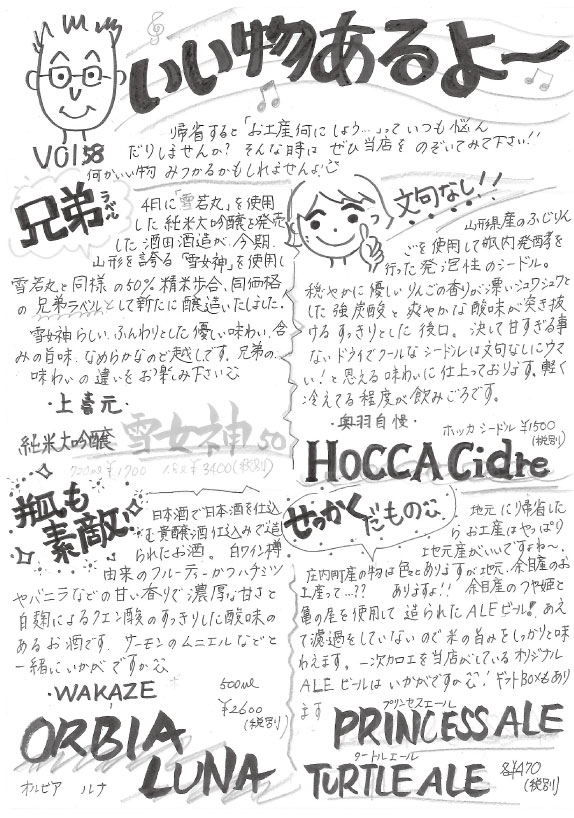 いい物あるよ〜
VOl 58
帰省すると「お土産何にしよう…」っていつも悩ん
だりしませんか? そんな時は ぜひ当店を のぞいてみて下さい!!
何かいい物 みつかるかもしれませんよ!
兄弟
ラベル
4月に「雪若丸」を使用
した純米大吟醸を発売
した酒田酒造が、今期、
山形を誇る「雪女神」を使用し
雪若丸と同様の50%精米歩合、同価格
の兄弟ラベルとして新たに醸造いたしました。
雪女神らしい、ふんわりとした優しい味わい、含
みの旨味、なめらかなのど越しです。兄弟の
味わいの違いをお楽しみ下さい
・上喜元・
純米大吟醸 雪女神50
720ml ¥1700 1.8L ¥3400(税別)
文句なし!!
山形県産のふじりん
ごを使用して瓶内発酵を
行った発泡性のシードル。
穏やかに優しいりんごの香りが漂いシュワシュワと
した強炭酸と爽やかな酸味が突き抜
けるすっきりとした後口。決して甘すぎる事
ない、ドライでクールなシードルは文句なしにウマ
い!と思える味わいに仕上っております。軽く
冷えてる程度が飲みごろです。
・奥羽自慢・
ホッカ シードル ¥1500
(税別)
HOCCA Cidre
瓶も
素敵
日本酒で日本酒を仕込
む貴醸酒仕込みで造
られたお酒。白ワイン樽
由来のフルーティーかつハチミツ
やバニラなどの甘い香りで濃厚な甘さと
白麹によるクエン酸のすっきりした酸味の
あるお酒です。サーモンのムニエルなどと
一緒にいかがですか
・WAKAZE
500ml
¥2600
(税別)
ORBIA
LUNA
オルビア ルナ
せっかくだもの
地元に帰省した
らお土産はやっぱり
地元産がいいですよね〜。
庄内町産の物は色々とありますが地元、余目産のお
土産って…?? ありますよ!! 余目産のつや姫と
亀の尾を使用して造られたALEビール!あえ
て濾過をしていないので米の旨みをしっかりと味
わえます。一次加工を当店がしているオリジナル
ALEビールはいかがですか! ギフトBOXもあり
ます
プリンセスエール
PRINCESS ALE
タートルエール
TURTLE ALE
各¥470
(税別)